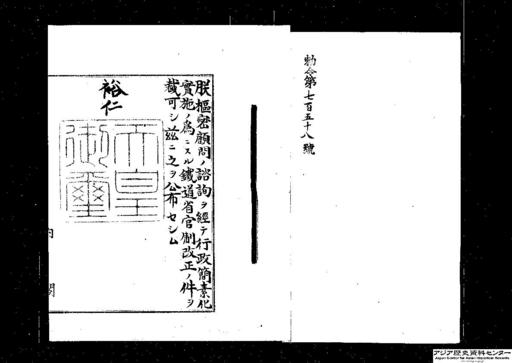 勅令第七百五十八號
朕樞密顧問ノ諮詢ヲ經テ行政簡素化
實施ノ爲ニスル鐵道省官制改正ノ件ヲ
裁可シ茲ニ之ヲ公布セシム
裕仁
天皇
御璽
内閣
アジア歴史資料センター
Japan Center for Asian Historical Records